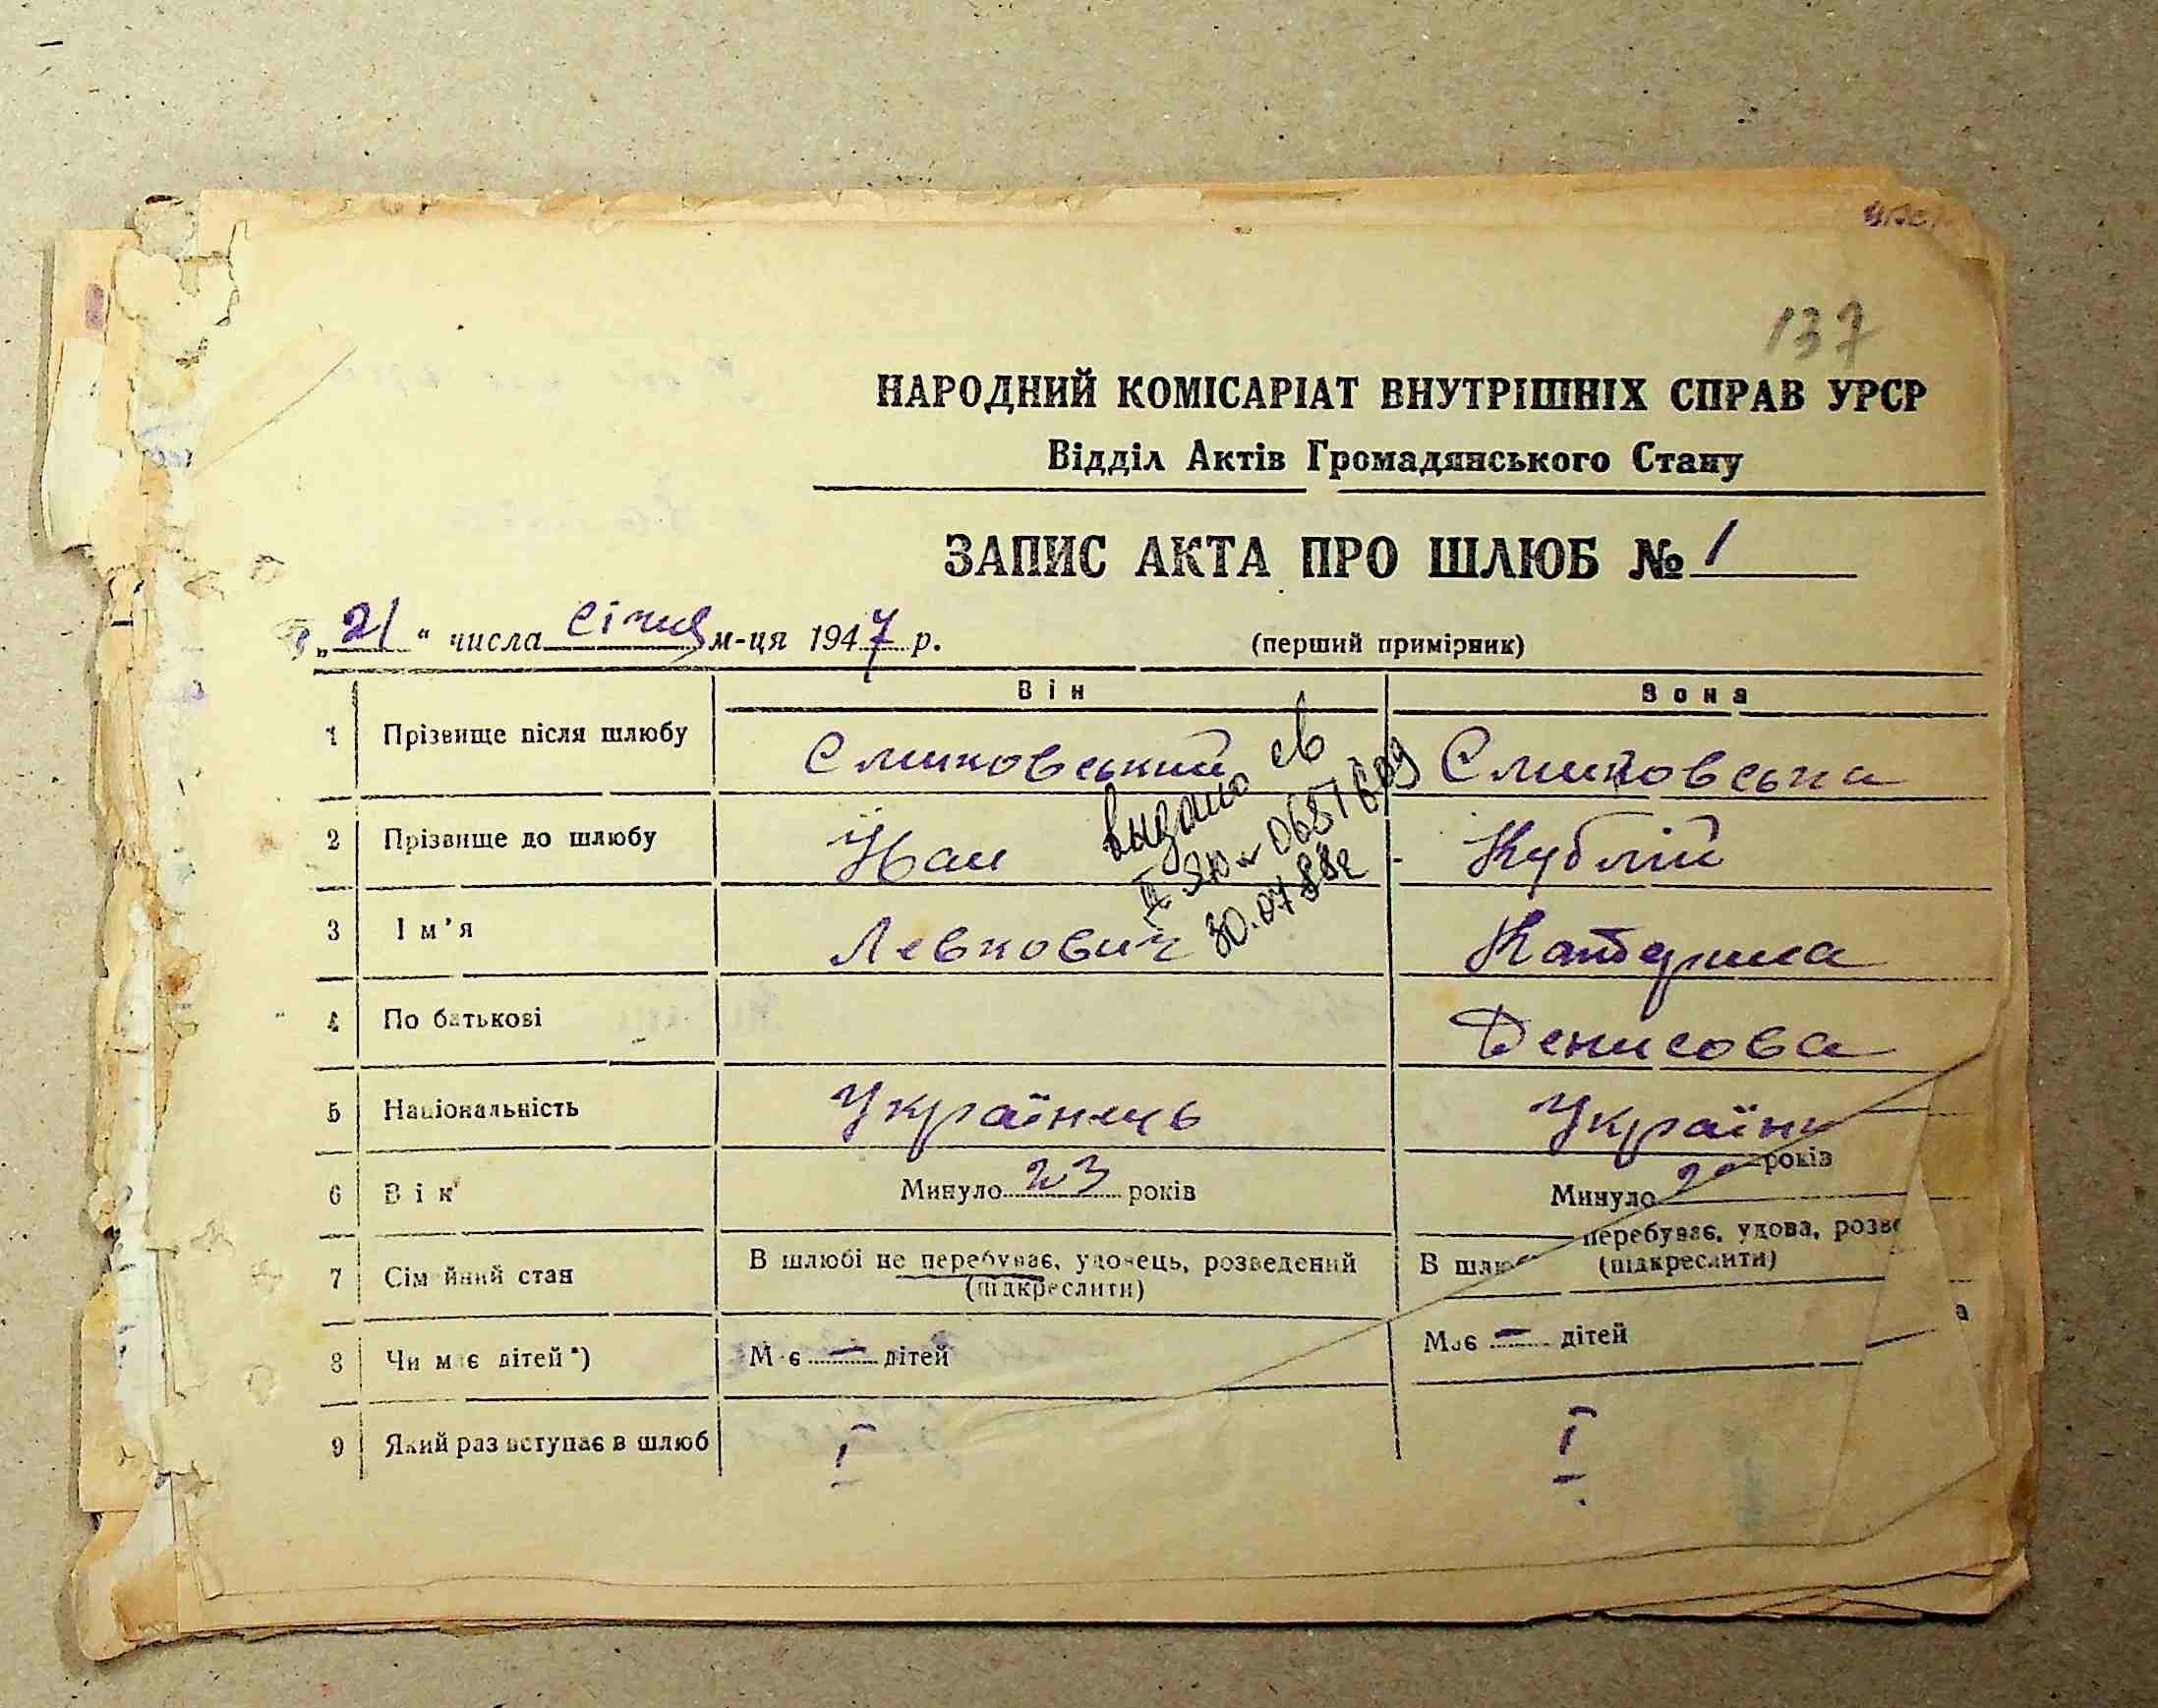 137
НАРОДНИЙ КОМІСАРІАТ ВНУТРІШНІХ СПРАВ УРСР
Відділ Актів Громадянського Стану
ЗАПИС АКТА ПРО ШЛЮБ № 1
„21“ числа січня м-ця 1947 р. (перший примірник)
Він Вона
1 Прізвище після шлюбу Смиковський Смиковська
видано св
2 Прізвище до шлюбу Йван Кублій
30.07.88г
3 Ім’я Левкович Катерина
4 По батькові Денисова
5 Національність Українець Україн
6 Вік Минуло 23 років Минуло 20 років
7 Сімейний стан В шлюбі не перебуває, удовець, розведений (підкреслити) В шлю перебуває, удова, розве (підкреслити)
8 Чи має дітей*) Має — дітей Має — дітей
9 Який раз вступає в шлюб I I